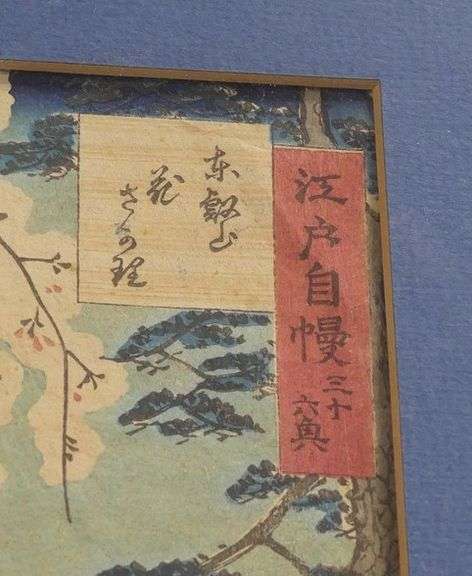 江戸自幔
三十
六興
東叡山
花
さか理